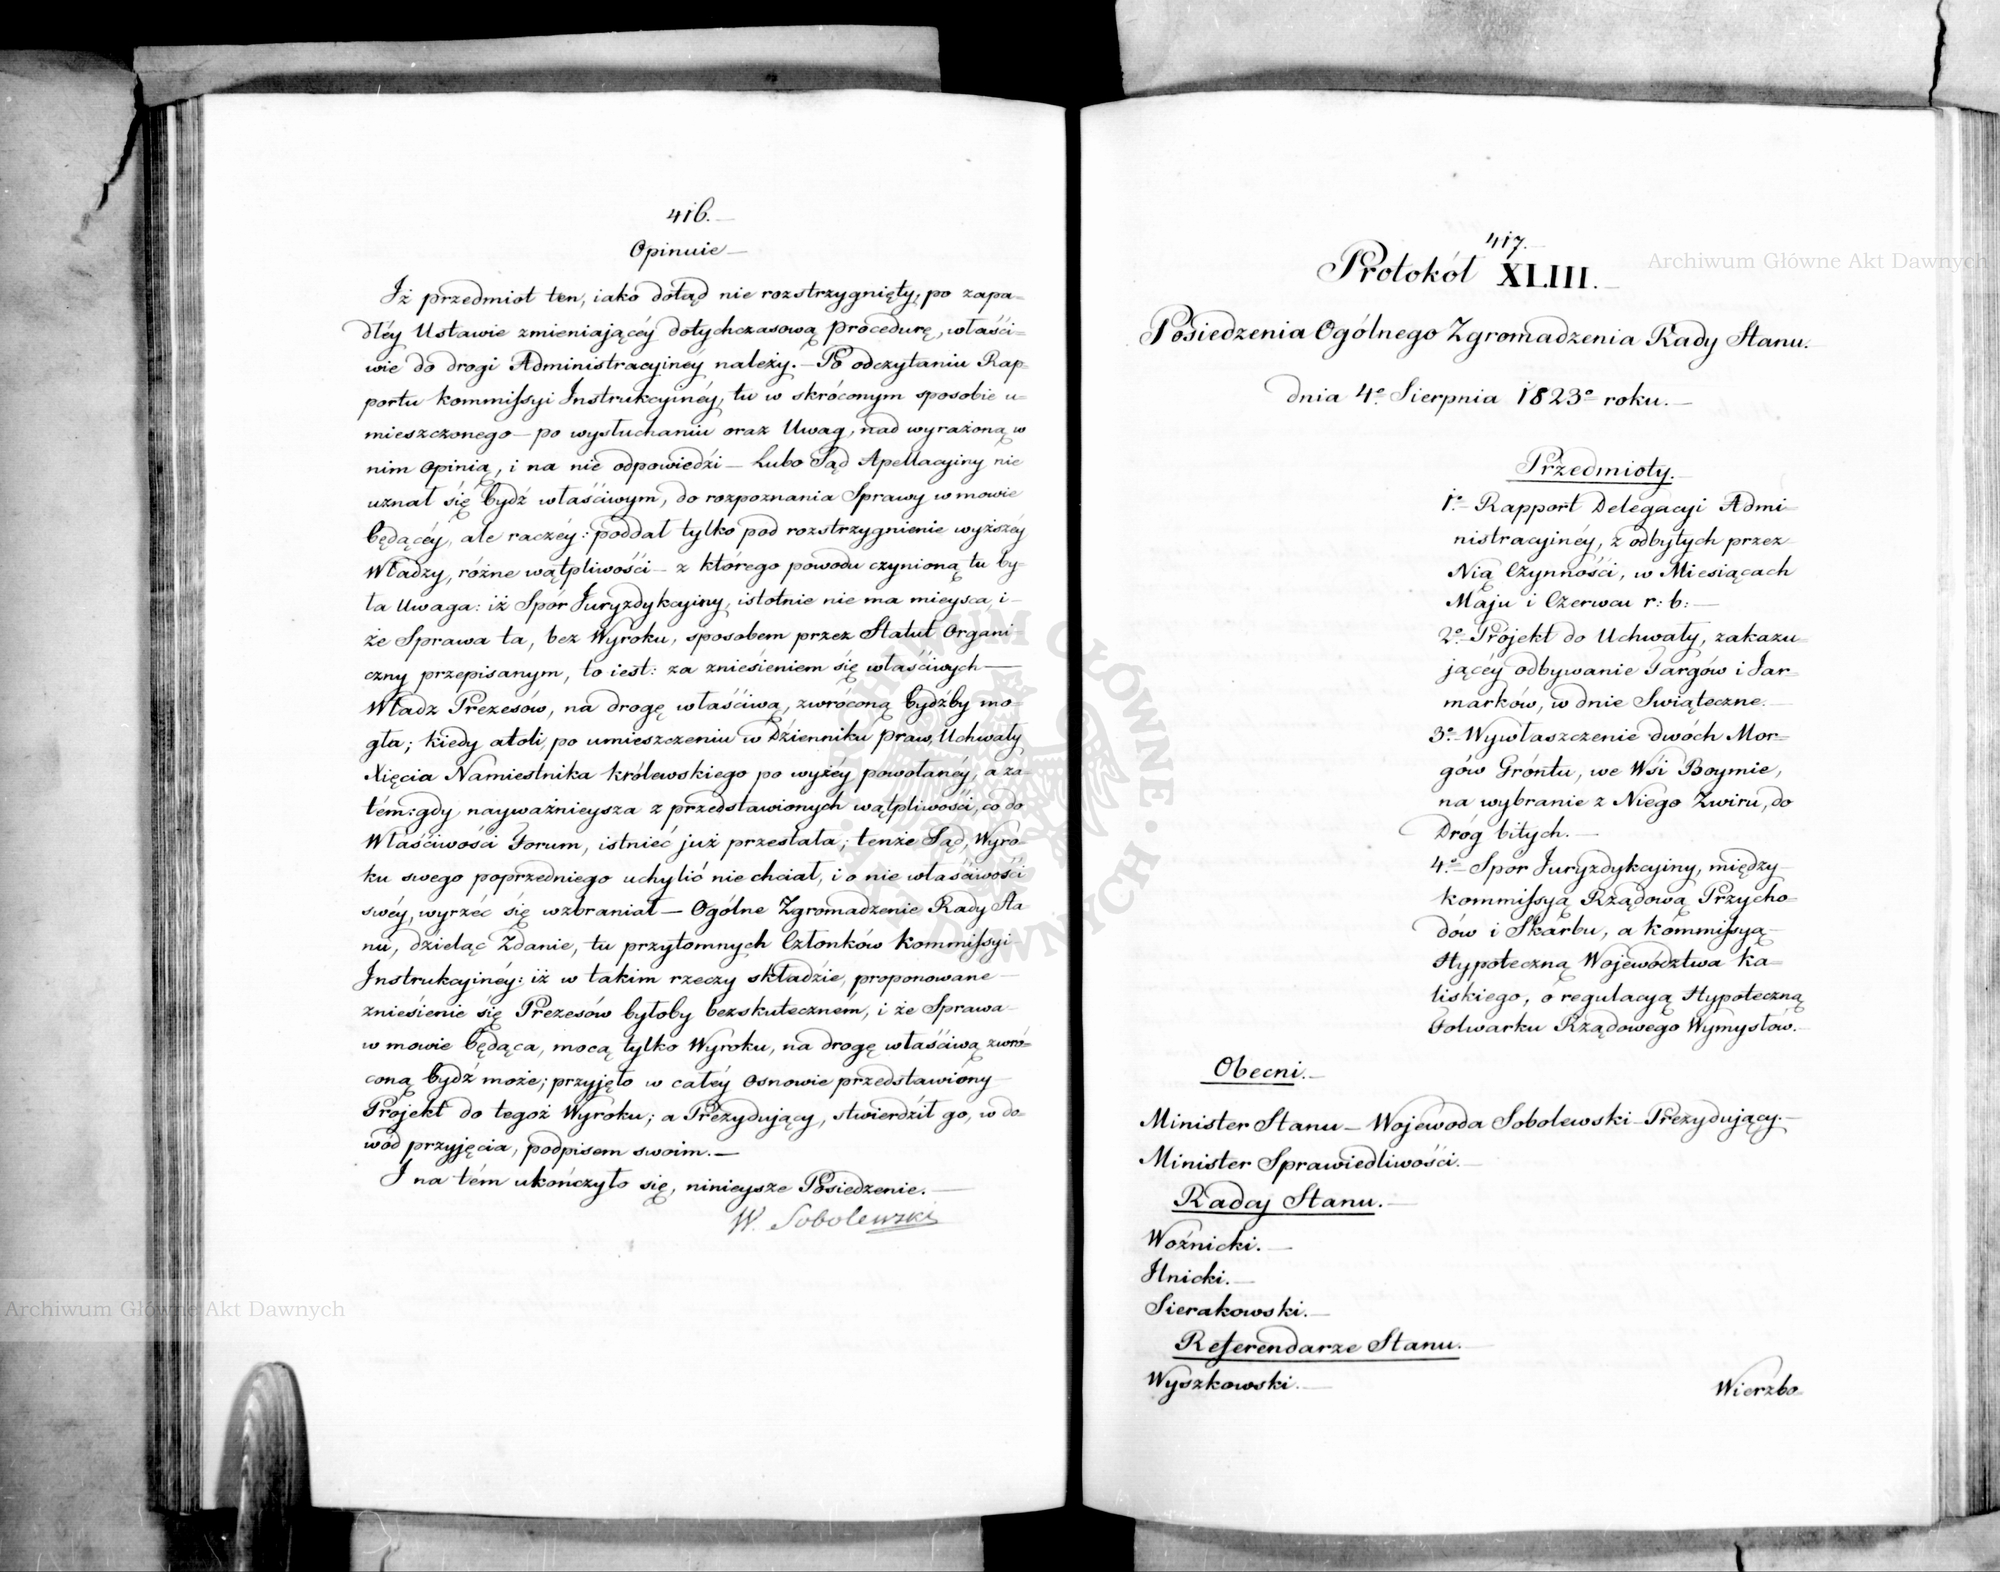 416.
Opinuie
Iż przedmiot ten, iako dotąd nie rozstrzygnięty, po zapa=
dłéy Ustawie zmieniaiącéy dotychczasową procedurę, właści=
wie do drogi Administracyinéy należy. — Po odczytaniu Rap=
portu Kommissyi Instrukcyinéy, tu w skróconym sposobie u=
mieszczonego — po wysłuchaniu oraz Uwag, nad wyrażoną w
nim Opinią, i na nie odpowiedzi — Lubo Sąd Apellacyiny nie
uznał się bydź właściwym, do rozpoznania Sprawy w mowie
będącéy, ale raczéy: poddał tylko pod rozstrzygnienie wyższéy
Władzy, różne wątpliwości — z którego powodu czynioną tu by=
ła Uwaga: iż Spór Juryzdykcyiny, istotnie nie ma mieysca, i —
że Sprawa ta, bez Wyroku, sposobem przez Statut Organi=
czny przepisanym, to iest: za zniesieniem się właściwych —
Władz Prezesów, na drogę właściwą, zwróconą bydźby mo=
gła; kiedy atoli, po umieszczeniu w Dzienniku Praw, Uchwały
Xięcia Namiestnika Królewskiego po wyżéy powołanéy, a za=
tém: gdy nayważnieysza z przedstawionych wątpliwości, co do
Właściwości Forum, istnieć już przestała; tenże Sąd, Wyro=
ku swego poprzedniego uchylić nie chciał, i o nie właściwości
swéy, wyrzéc się wzbraniał — Ogólne Zgromadzenie Rady Sta
nu, dzieląc Zdanie, tu przytomnych Członków Kommissyi
Instrukcyinéy: iż w takim rzeczy składzie, proponowane —
zniesienie się Prezesów byłoby bezskuteczném, i że Sprawa
w mowie będąca, mocą tylko Wyroku, na drogę właściwą zwró=
coną bydź może; przyjęło w całéy Osnowie przedstawiony
Projekt do tegoż Wyroku; a Prezydujący, stwierdził go, w do=
wód przyjęcia, podpisem swoim. —
I na tém ukończyło się, ninieysze Posiedzenie. —
W. Sobolewski
417.
Protokół XLIII.
Posiedzenia Ogólnego Zgromadzenia Rady Stanu.
dnia 4º Sierpnia 1823º roku. —
Przedmioty.
1º Rapport Delegacyi Admi=
nistracyinéy, z odbytych przez
Nią Czynności, w Miesiącach
Maju i Czerwcu r: b: —
2º Projekt do Uchwały, zakazu=
jącéy odbywanie Targów i Jar=
marków, w dnie Swiąteczne.
3º Wywłaszczenie dwóch Mor=
gów Gróntu, we Wsi Boymie,
na wybranie z Niego Zwiru, do
Dróg bitych. —
4º Spor Juryzdykcyiny, między
Kommissyą Rządową Przycho=
dów i Skarbu, a Kommissyą
Hypoteczną Województwa Ka=
liskiego, o regulacyą Hypoteczną
Folwarku Rządowego Wymysłów. —
Obecni. —
Minister Stanu — Wojewoda Sobolewski — Prezydujący. —
Minister Sprawiedliwości. —
Radcy Stanu. —
Woźnicki. —
Ilnicki. —
Sierakowski. —
Referendarze Stanu.
Wyszkowski. —
Wierzbo=
Archiwum Główne Akt Dawnych
Archiwum Główne Akt Dawnych
ARCHIWUM GŁÓWNE AKT DAWNYCH